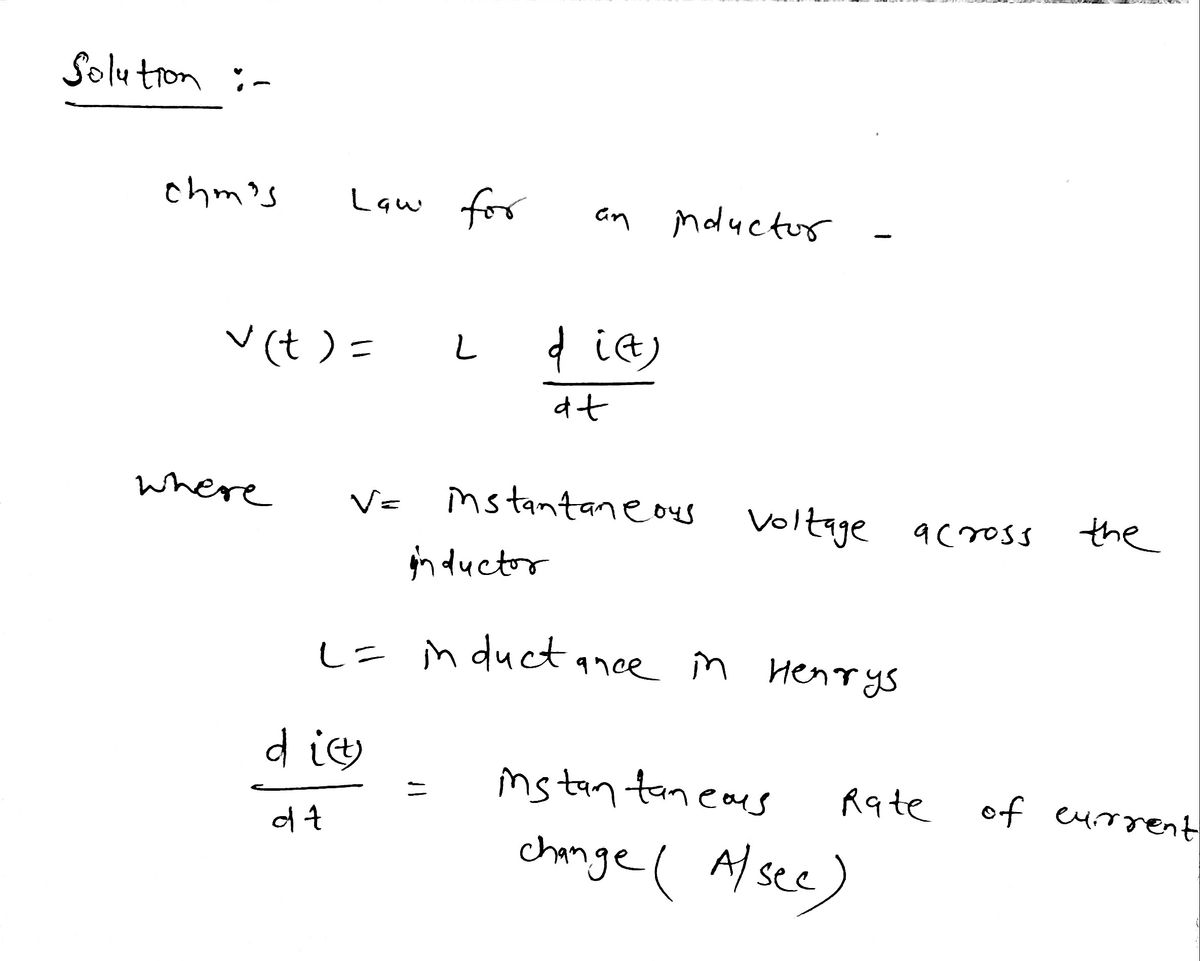 Solution :-
Ohm's Law for an inductor -
V(t) = L d i(t)
dt
where V= instantaneous Voltage across the
inductor
L= inductance in Henrys
d i(t)
dt
= instantaneous Rate of current
change ( A/sec)